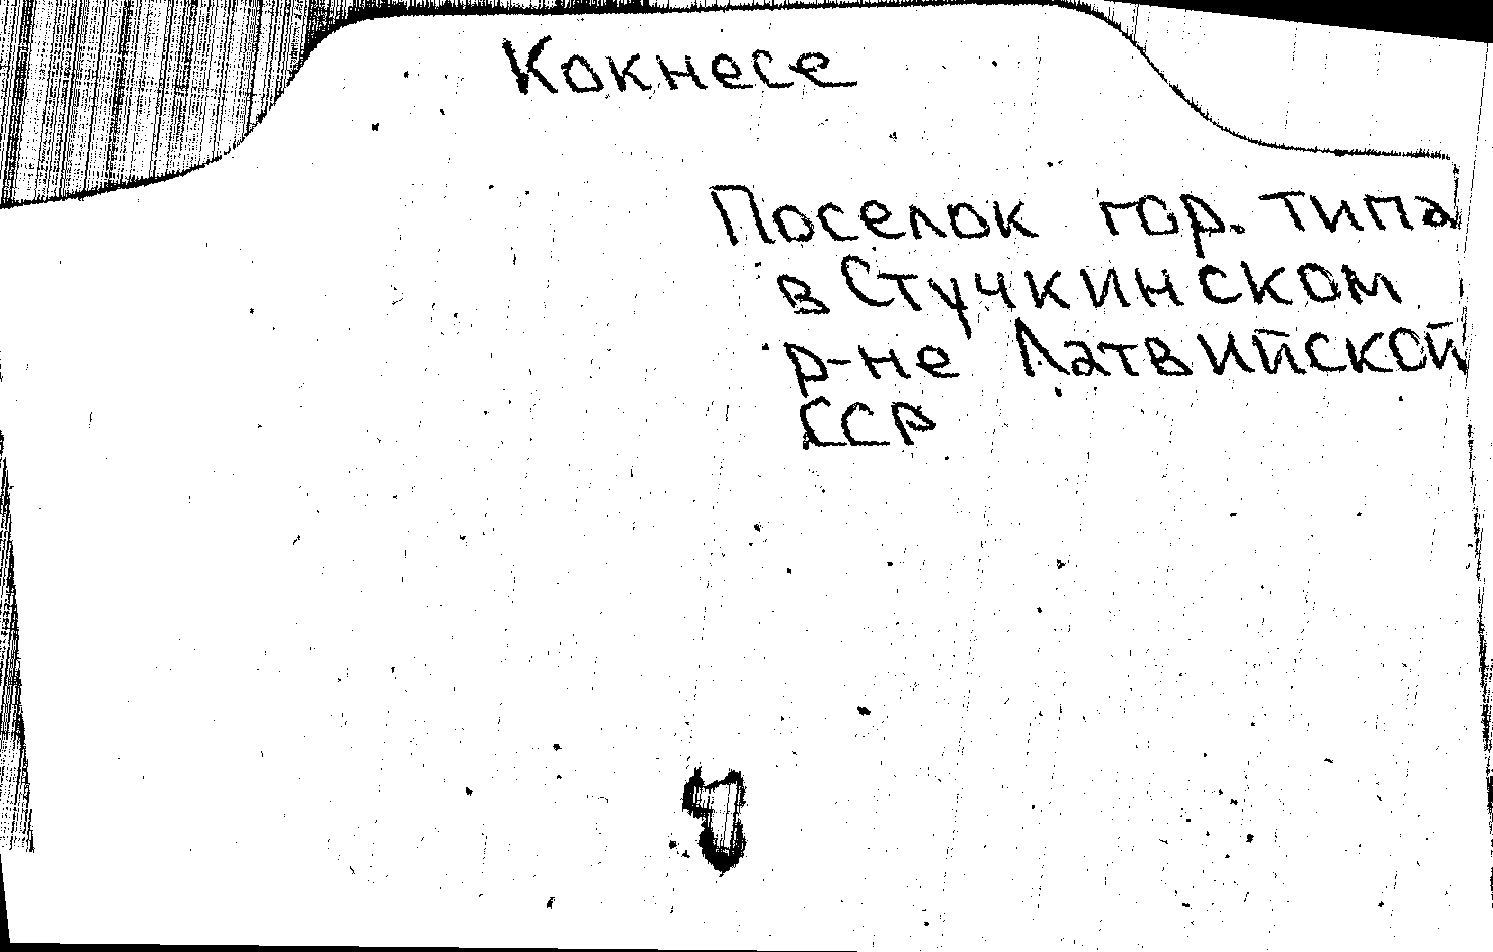 Кокнесе
Поселок гор. типа
в Стучкинском
р-не Латвийской
ССР